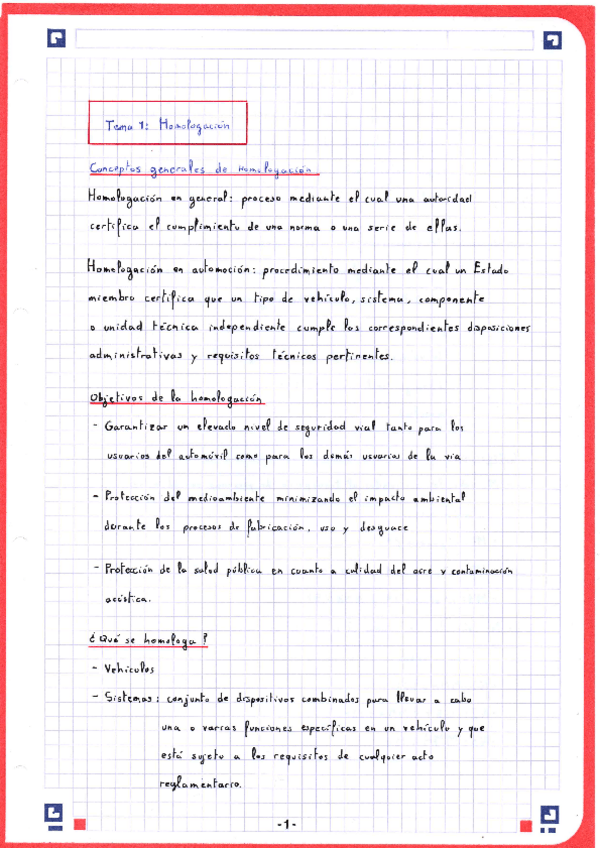 Tema 1: Homologación
Conceptos generales de Homologación
Homologación en general: proceso mediante el cual una autoridad
certifica el cumplimiento de una norma o una serie de ellas.
Homologación en automoción: procedimiento mediante el cual un Estado
miembro certifica que un tipo de vehículo, sistema, componente
o unidad técnica independiente cumple las correspondientes disposiciones
administrativas y requisitos técnicos pertinentes.
Objetivos de la homologación
- Garantizar un elevado nivel de seguridad vial tanto para los
usuarios del automóvil como para los demás usuarios de la vía
- Protección del medioambiente minimizando el impacto ambiental
durante los procesos de fabricación, uso y desguace
- Protección de la salud pública en cuanto a calidad del aire y contaminación
acústica.
¿Qué se homologa?
- Vehículos
- Sistemas: conjunto de dispositivos combinados para llevar a cabo
una o varias funciones específicas en un vehículo y que
está sujeto a los requisitos de cualquier acto
reglamentario.
-1-